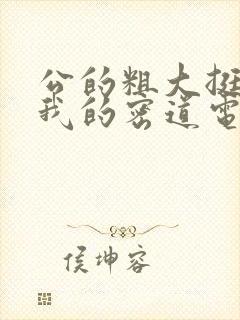 公的粗大挺
我的密道电
侯坤容